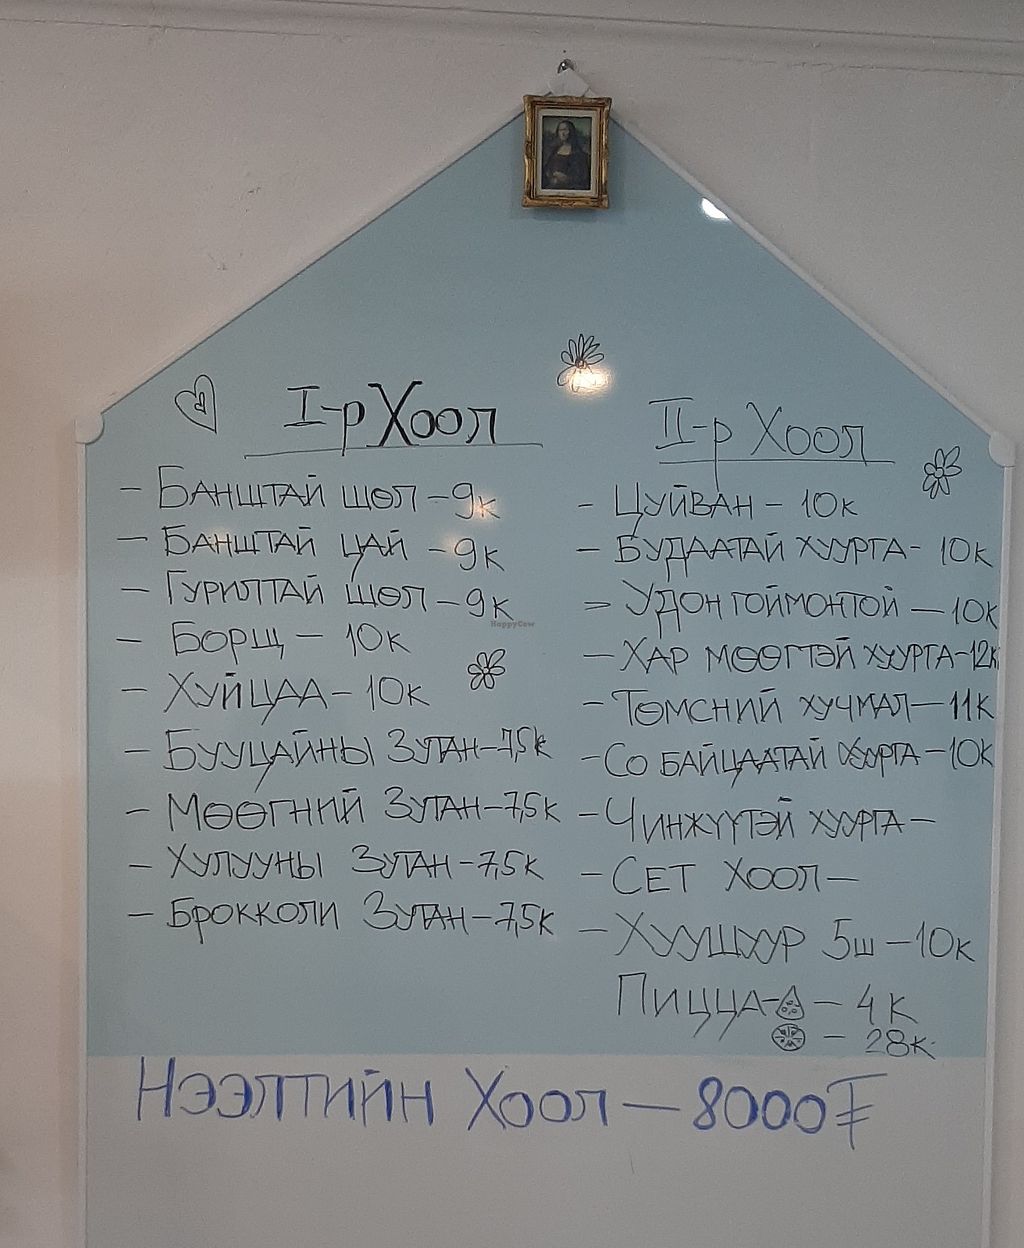 I-р Хоол
- Банштай шөл - 9к
- Банштай цай - 9к
- Гурилтай шөл - 9к
- Борщ - 10к
- Хуйцаа - 10к
- Бууцайны Зутан - 7,5к
- Мөөгний Зутан - 7,5к
- Хулууны Зутан - 7,5к
- Брокколи Зутан - 7,5к
II-р Хоол
- Цуйван - 10к
- Будаатай хуурга - 10к
- Удон гоймонтой - 10к
- Хар мөөгтэй хуурга - 12к
- Төмсний хучмал - 11к
- Со байцаатай хуурга - 10к
- Чинжүүтэй хуурга -
- Сет хоол -
- Хуушуур 5ш - 10к
Пицца - - 4к
- 28к
Нээлтийн Хоол - 8000₮
HappyCow